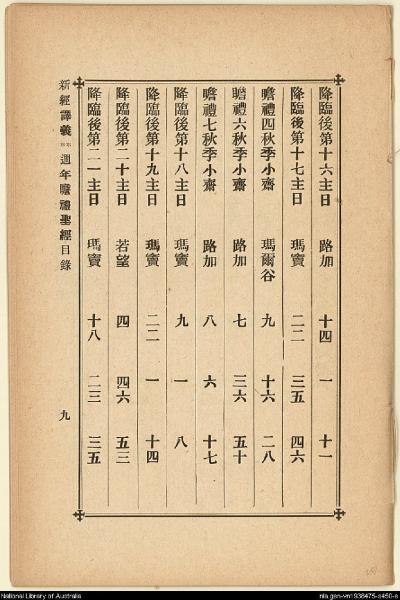 降臨後第十六主日 路加 十四 一 十一
降臨後第十七主日 瑪竇 二二 三五 四六
瞻禮四秋季小齋 瑪爾谷 九 十六 二八
瞻禮六秋季小齋 路加 七 三六 五十
瞻禮七秋季小齋 路加 八 六 十七
降臨後第十八主日 瑪竇 九 一 八
降臨後第十九主日 瑪竇 二二 一 十四
降臨後第二十主日 若望 四 四六 五三
降臨後第二一主日 瑪竇 十八 二三 三五
新經譯義 週年瞻禮聖經目錄 九
National Library of Australia
nla.gen-vn1938475-s450-e